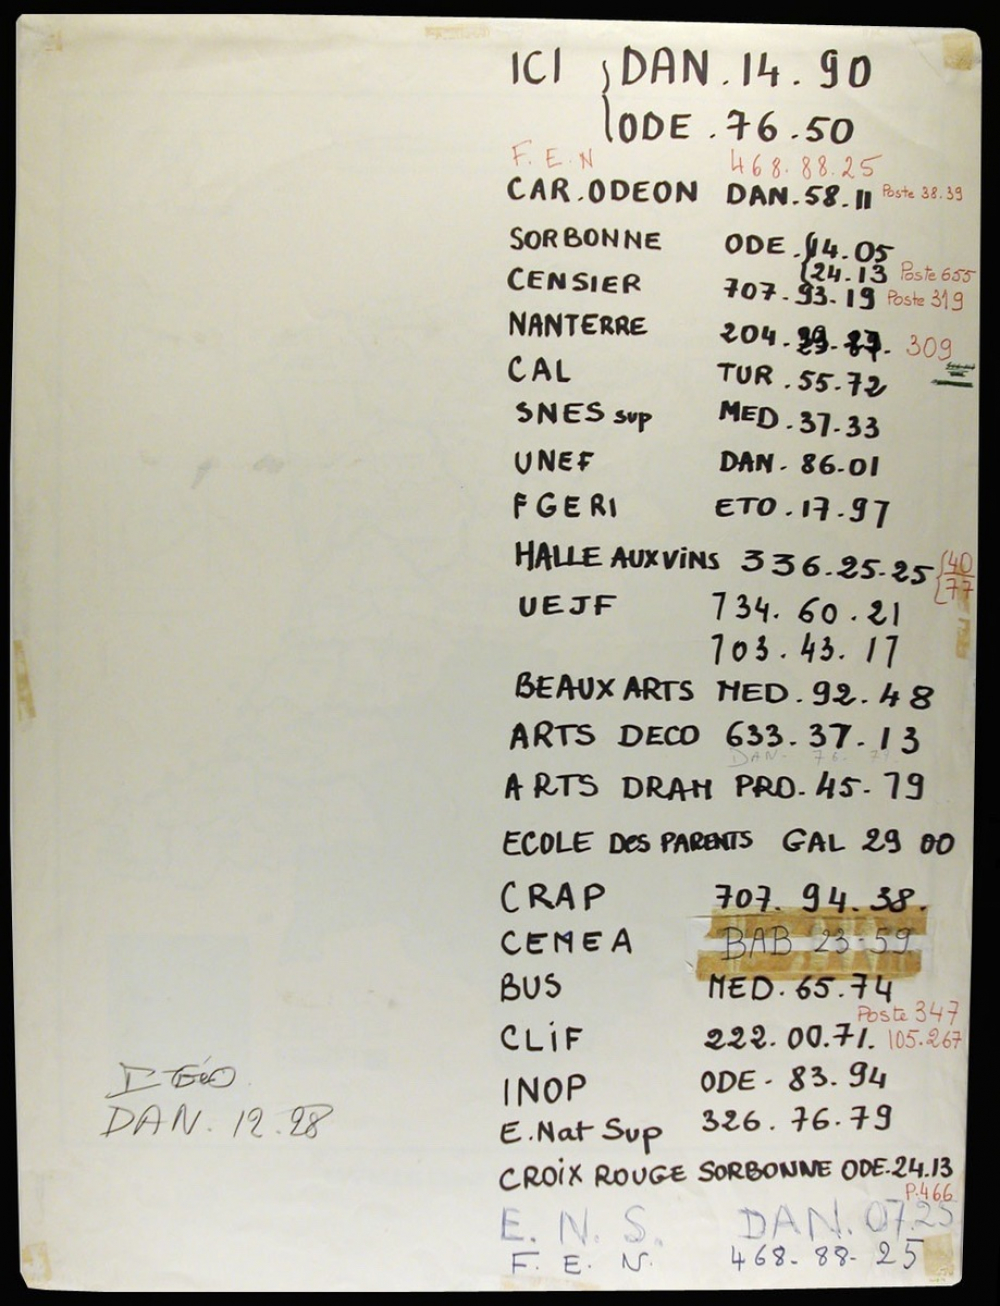 ICI { DAN. 14. 90
{ ODE. 76. 50
F. E. N 468. 88. 25
CAR. ODEON DAN. 58. 11 Poste 38.39
SORBONNE ODE. { 14. 05
{ 24. 13 Poste 655
CENSIER 707. 93. 19 Poste 319
NANTERRE 204. 309
CAL TUR. 55. 72
SNES sup MED. 37. 33
UNEF DAN. 86-01
FGERI ETO. 17. 97
HALLE AUX VINS 336. 25. 25 { 40
77
UEJF 734. 60. 21
703. 43. 17
BEAUX ARTS MED. 92. 48
ARTS DECO 633. 37. 13
DAN. 76. 79.
ARTS DRAM PRO. 45. 79
ECOLE Des PARENTS GAL 29 00
CRAP 707. 94. 38.
CEMEA BAB 23-59
BUS MED. 65. 74
Poste 347
CLiF 222. 00. 71. 105.267
INOP ODE - 83. 94
E. Nat Sup 326. 76. 79
CROiX ROUGE SORBONNE ODE. 24. 13
P. 466
E. N. S. DAN. 07. 25
F. E. N. 468. 88. 25
DAN. 12. 28